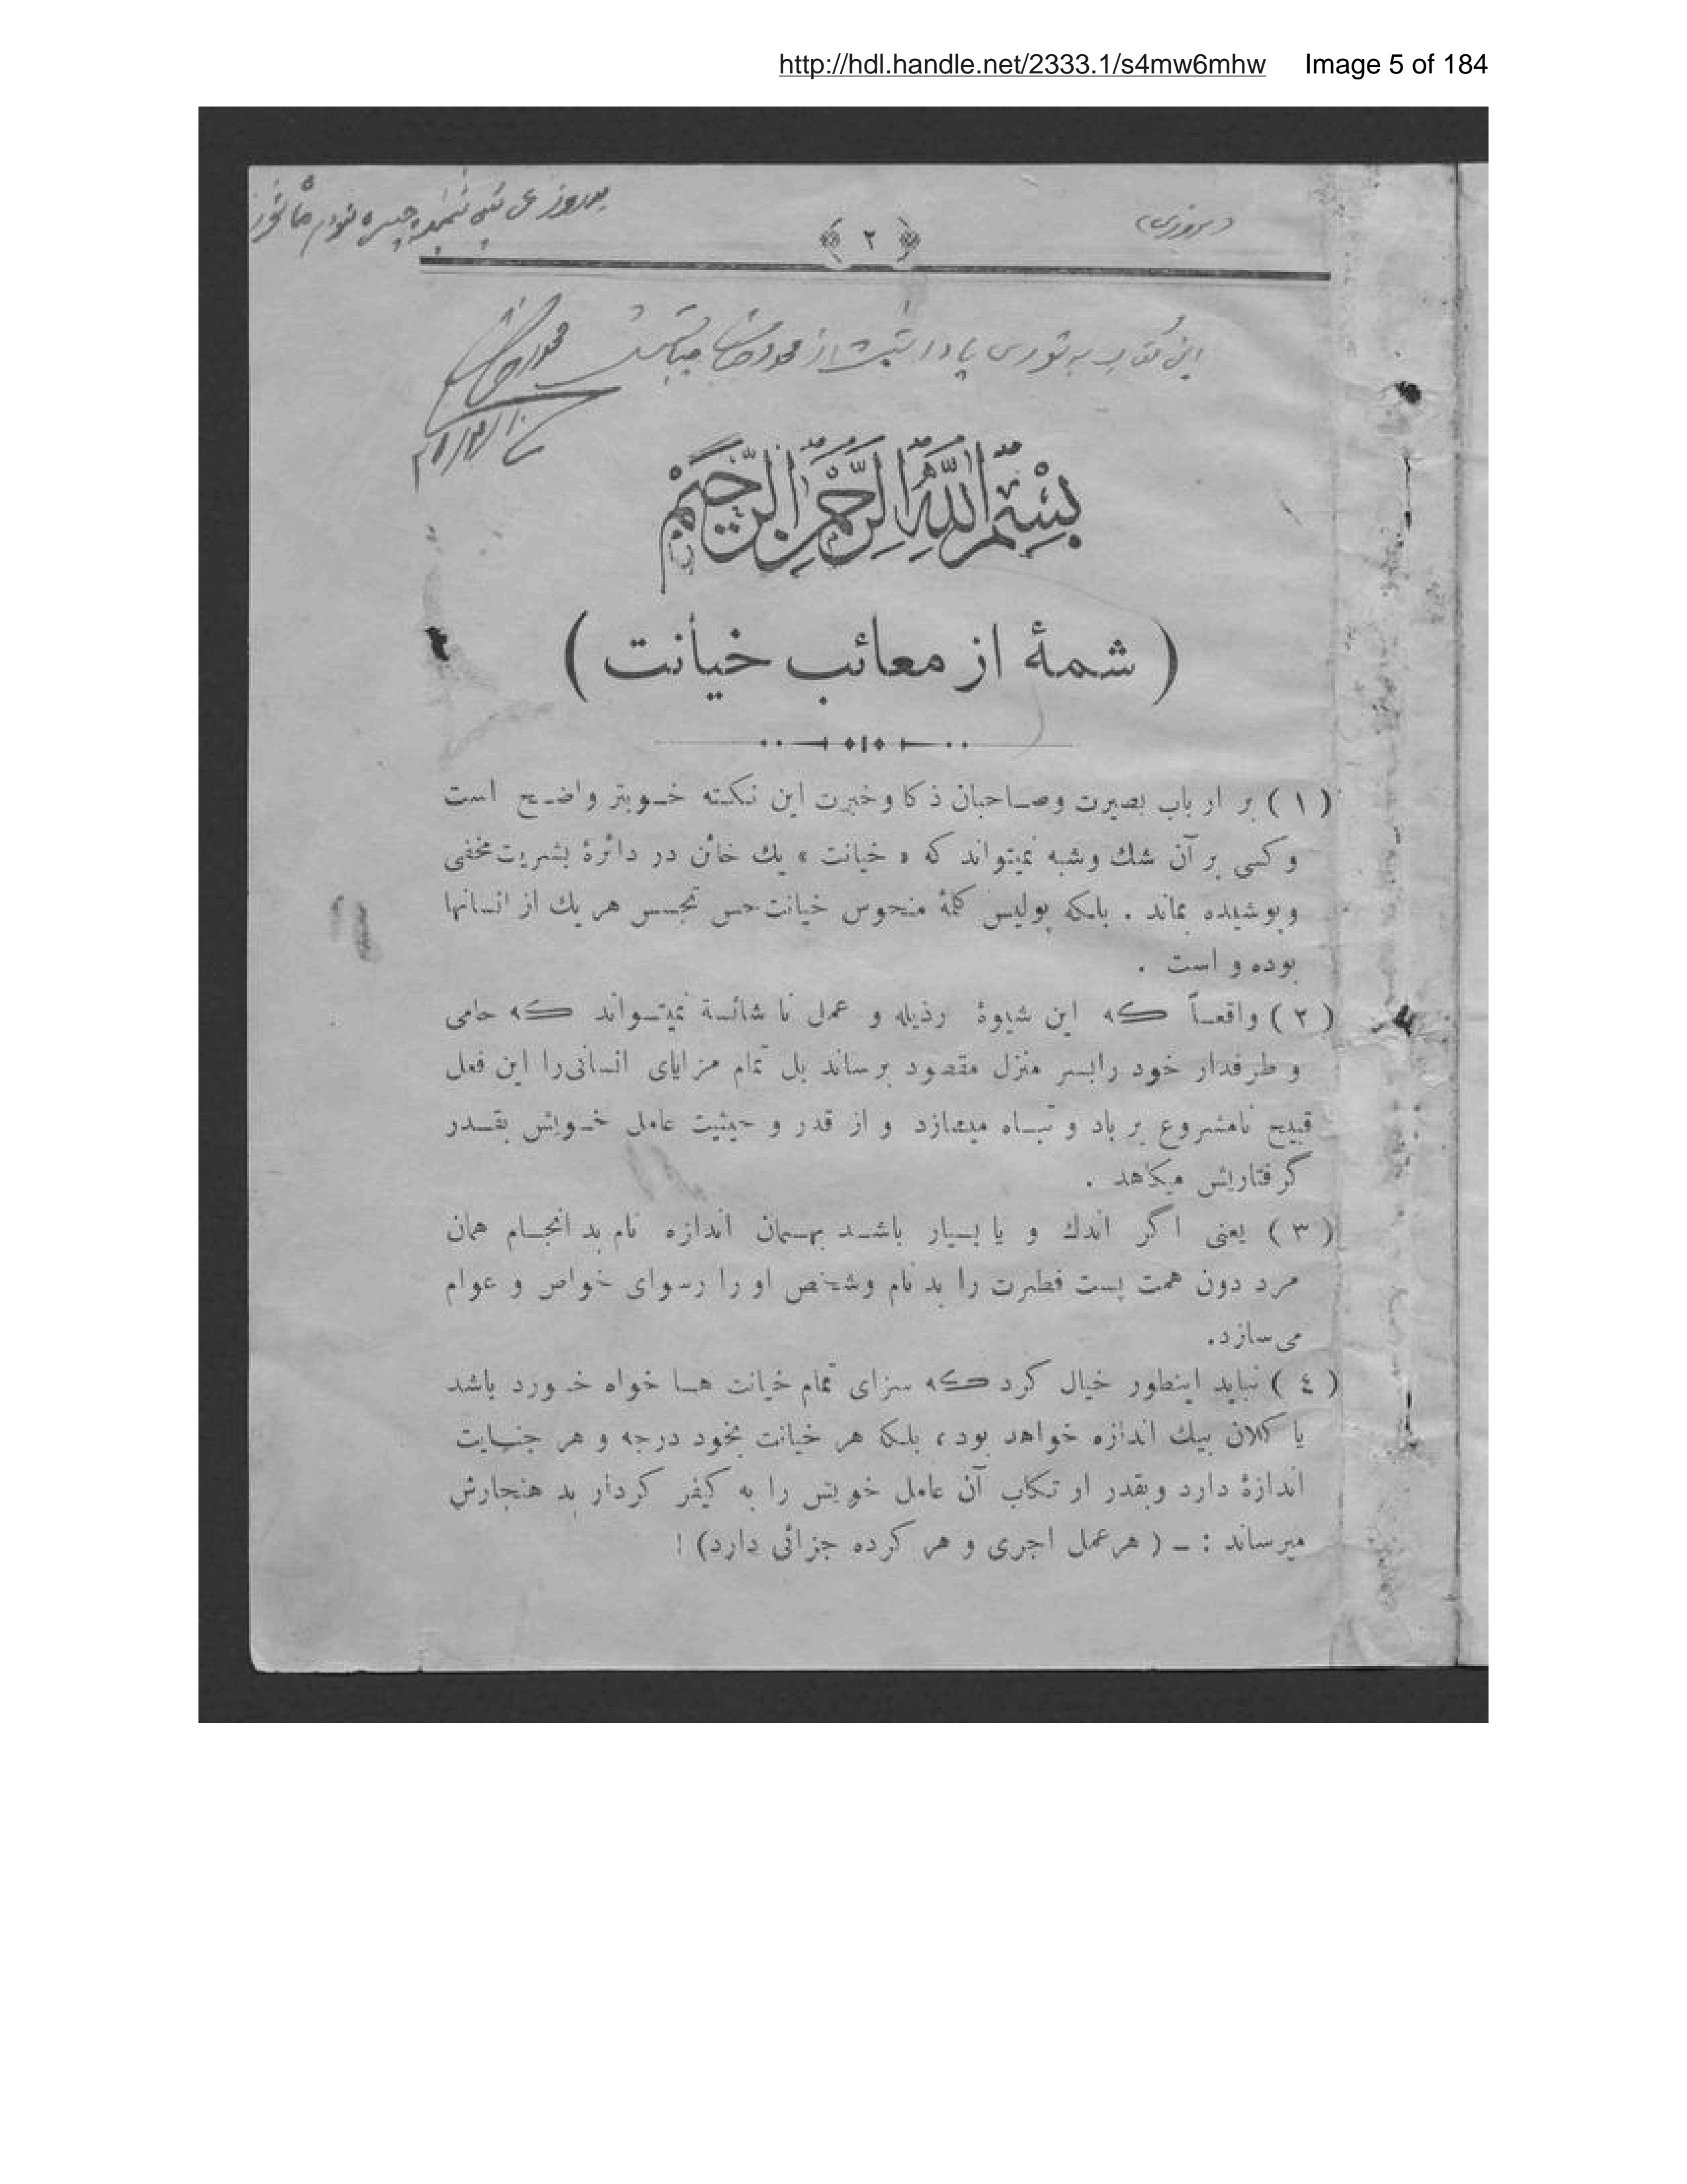 http://hdl.handle.net/2333.1/s4mw6mhw Image 5 of 184
﴿ ٢ ﴾
این کتاب به تورس یادداشت از محمود
بِسْمِ اللّٰهِ الرَّحْمٰنِ الرَّحِيْمِ
( شمهٔ از معائب خیأنت )
( ١ ) بر ارباب بصیرت وصاحبان ذکا وخبرت این نکته خوبتر واضح است
وکسی بر آن شك وشبه نمیتواند که « خیانت » یك خائن در دائرهٔ بشریت مخفی
وپوشیده بماند . بلکه پولیس کلمهٔ منحوس خیانت حس تجسس هر یك از انسانها
بوده و است .
( ٢ ) واقعاً که این شیوهٔ رذیله و عمل نا شائسة نمیتواند که حامی
و طرفدار خود رابسر منزل مقصود برساند بل تمام مزایای انسانی‌را این فعل
قبیح نامشروع بر باد و تباه میسازد و از قدر و حیثیت عامل خویش بقدر
گرفتاریش میکاهد .
( ٣ ) یعنی اگر اندك و یا بسیار باشد بهمان اندازه نام بد انجام همان
مرد دون همت پست فطرت را بد نام وشخص او را رسوای خواص و عوام
می‌سازد.
( ٤ ) نباید اینطور خیال کرد که سزای تمام خیانت ها خواه خورد باشد
یا کلان بیك اندازه خواهد بود، بلکه هر خیانت بخود درجه و هر جنایت
اندازهٔ دارد وبقدر ارتکاب آن عامل خویش را به کیفر کردار بد هنجارش
میرساند : ـ ( هرعمل اجری و هر کرده جزائی دارد) !